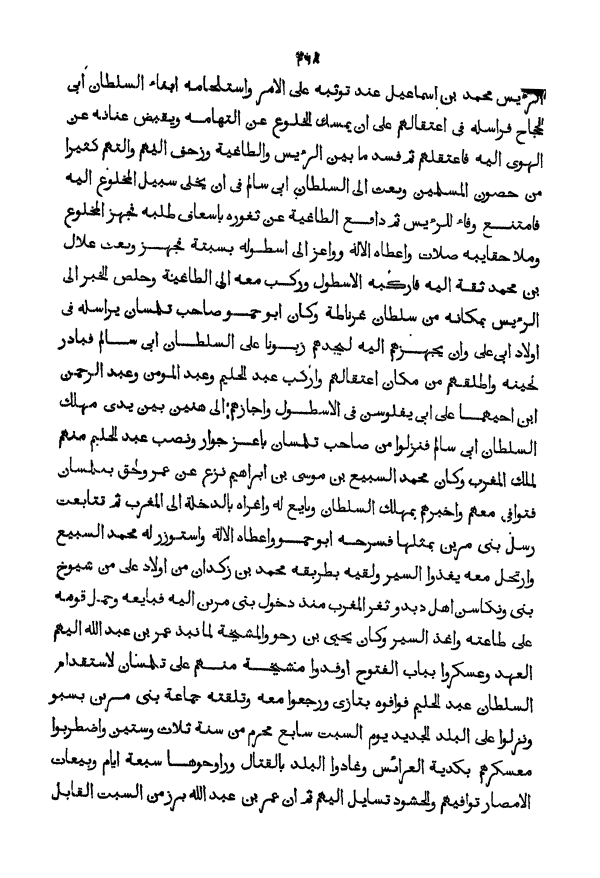 ٣٤٨
الرءيس محمد بن اسماعيل عند توثبه على الامر واستلحامه ابناء السلطان ابى
الحجاج فراسله فى اعتقالهم على ان يمسك المخلوع عن التهامه ويقبض عنانه عن
الهوى اليه فاعتقلهم ثم فسد ما بين الرءيس والطاغية وزحف اليهم والتهم كثيرا
من حصون المسلمين وبعث الى السلطان ابى سالم فى ان يخلى سبيل المخلوع اليه
فامتنع وفاء للرءيس ثم دافع الطاغية عن ثغوره باسعاف طلبه فجهز المخلوع
وملا حقايبه صلات واعطاه الالة وواعز الى اسطوله بسبتة فجهز وبعث علال
بن محمد ثقة اليه فاركبه الاسطول وركب معه الى الطاغية وخلص الخبر الى
الرءيس بمكانه من سلطان غرناطة وكان ابو حمو صاحب تلمسان يراسله فى
اولاد ابى على وان يجهزهم اليه ليجدهم زبونا على السلطان ابى سالم فبادر
لحينه واطلقهم من مكان اعتقالهم واركب عبد الحليم وعبد المومن وعبد الرحمن
ابن اخيهما على ابى يفلوسن فى الاسطول واجازهم الى هنين بين يدى مهلك
السلطان ابى سالم فنزلوا من صاحب تلمسان باعز جوار ونصب عبد الحليم منهم
لملك المغرب وكان محمد السبيع بن موسى بن ابراهيم نزع عن عمر ولحق بتلمسان
فتوافى معهم واخبرهم بمهلك السلطان وبايع له واغراه بالدخلة الى المغرب ثم تتابعت
رسل بنى مرين بمثلها فسرحه ابو حمو واعطاه الالة واستوزر له محمد السبيع
وارتحل معه يغذوا السير ولقيه بطريقه محمد بن زكدان من اولاد على من شيوخ
بنى ونكاسن اهل دبدو ثغر المغرب منذ دخول بنى مرين اليه فبايعه وحمل قومه
على طاعته واغذ السير وكان يحيى بن رحو والمشيخة لما نبذ عمر بن عبد الله اليهم
العهد وعسكروا بباب الفتوح اوفدوا مشيخة منهم على تلمسان لاستقدام
السلطان عبد الحليم فوافوه بتازى ورجعوا معه وتلقته جماعة بنى مرين بسبو
ونزلوا على البلد الجديد يوم السبت سابع محرم من سنة ثلاث وستين واضطربوا
معسكرهم بكدية العرائس وغادوا البلد بالقتال وراوحوها سبعة ايام وبيعات
الامصار توافيهم والحشود تسايل اليهم ثم ان عمر بن عبد الله برز من السبت القابل